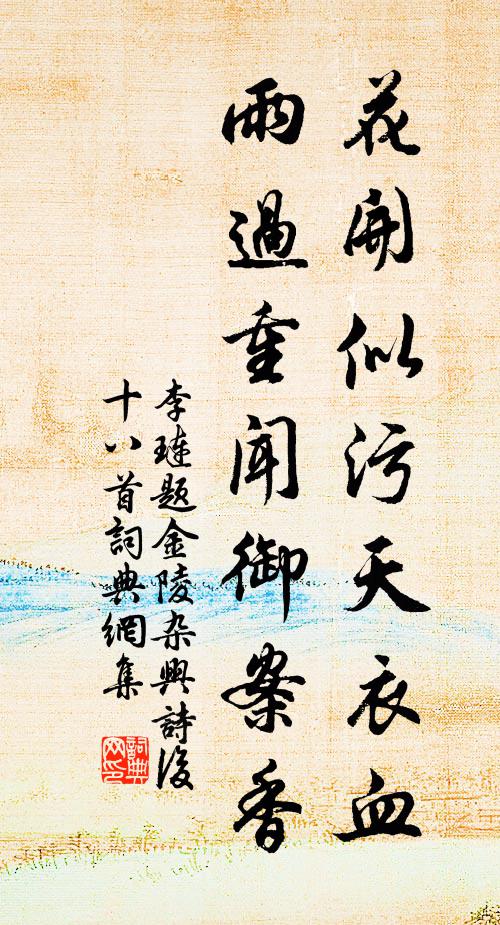 花開似污天衣血
雨過重聞御案香
李璉題金陵杂興詩後
十八首詞典網集
詞典网印